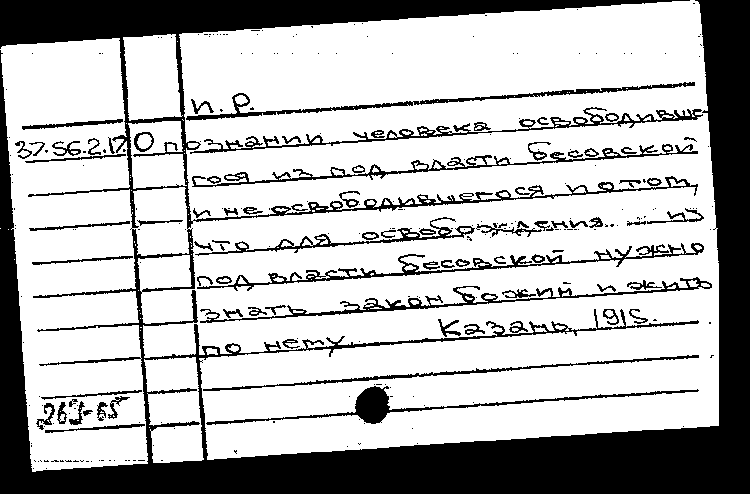 п. Р.
37.56.2.17 О познании человека освободивше-
гося из под власти бесовской
и не освободившегося и о том,
что для освобождения из
под власти бесовской нужно
знать закон божий и жить
по нему. Казань, 1915.
269-65